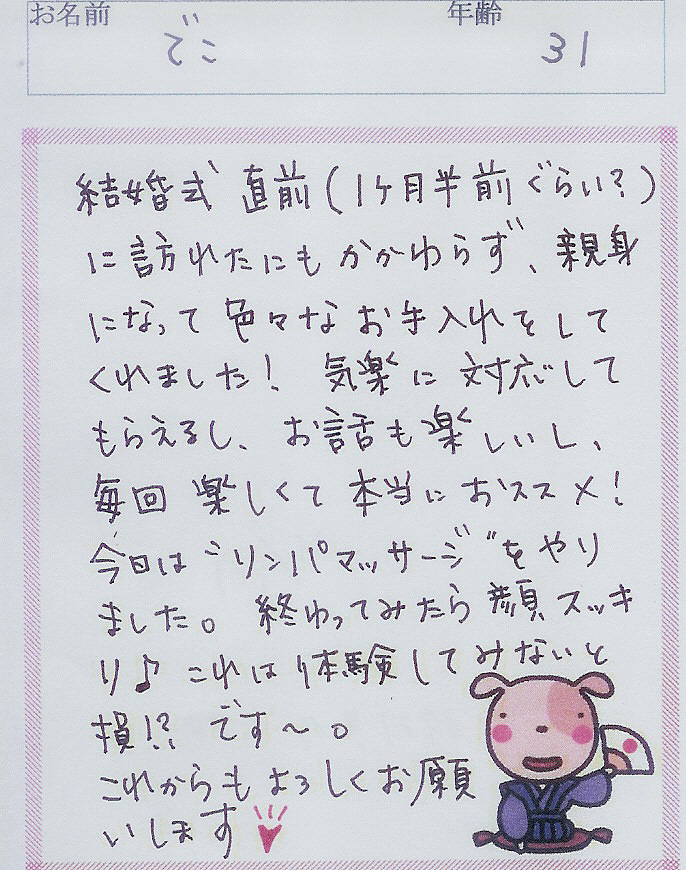 お名前 年齢
でこ 31
結婚式 直前(1ヶ月半前ぐらい?)
に訪れたにもかかわらず、親身
になって色々なお手入れをして
くれました! 気楽に対応して
もらえるし、お話も楽しいし、
毎回 楽しくて本当におススメ!
今日は"リンパマッサージ"をやり
ました。終わってみたら顔スッキ
リ♪これは体験してみないと
損!?です〜。
これからもよろしくお願
いします